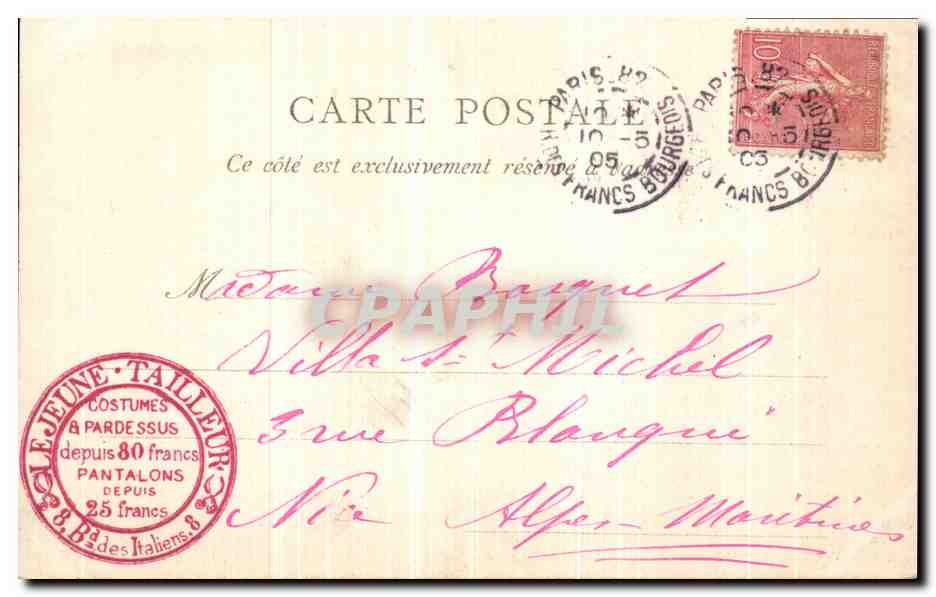 CARTE POSTALE
Ce côté est exclusivement réservé à
PARIS_82
10 -5
05
R. DES FRANCS BOURGEOIS
PARIS
05
FRANCS BOURGEOIS
10
Madame Bosquet
CPAPHIL
Villa St Michel
3 rue Blanqui
Nice Alpes-Maritimes
LEJEUNE · TAILLEUR
COSTUMES
& PARDESSUS
depuis 80 francs
PANTALONS
DEPUIS
25 francs
8, Bd des Italiens, 8